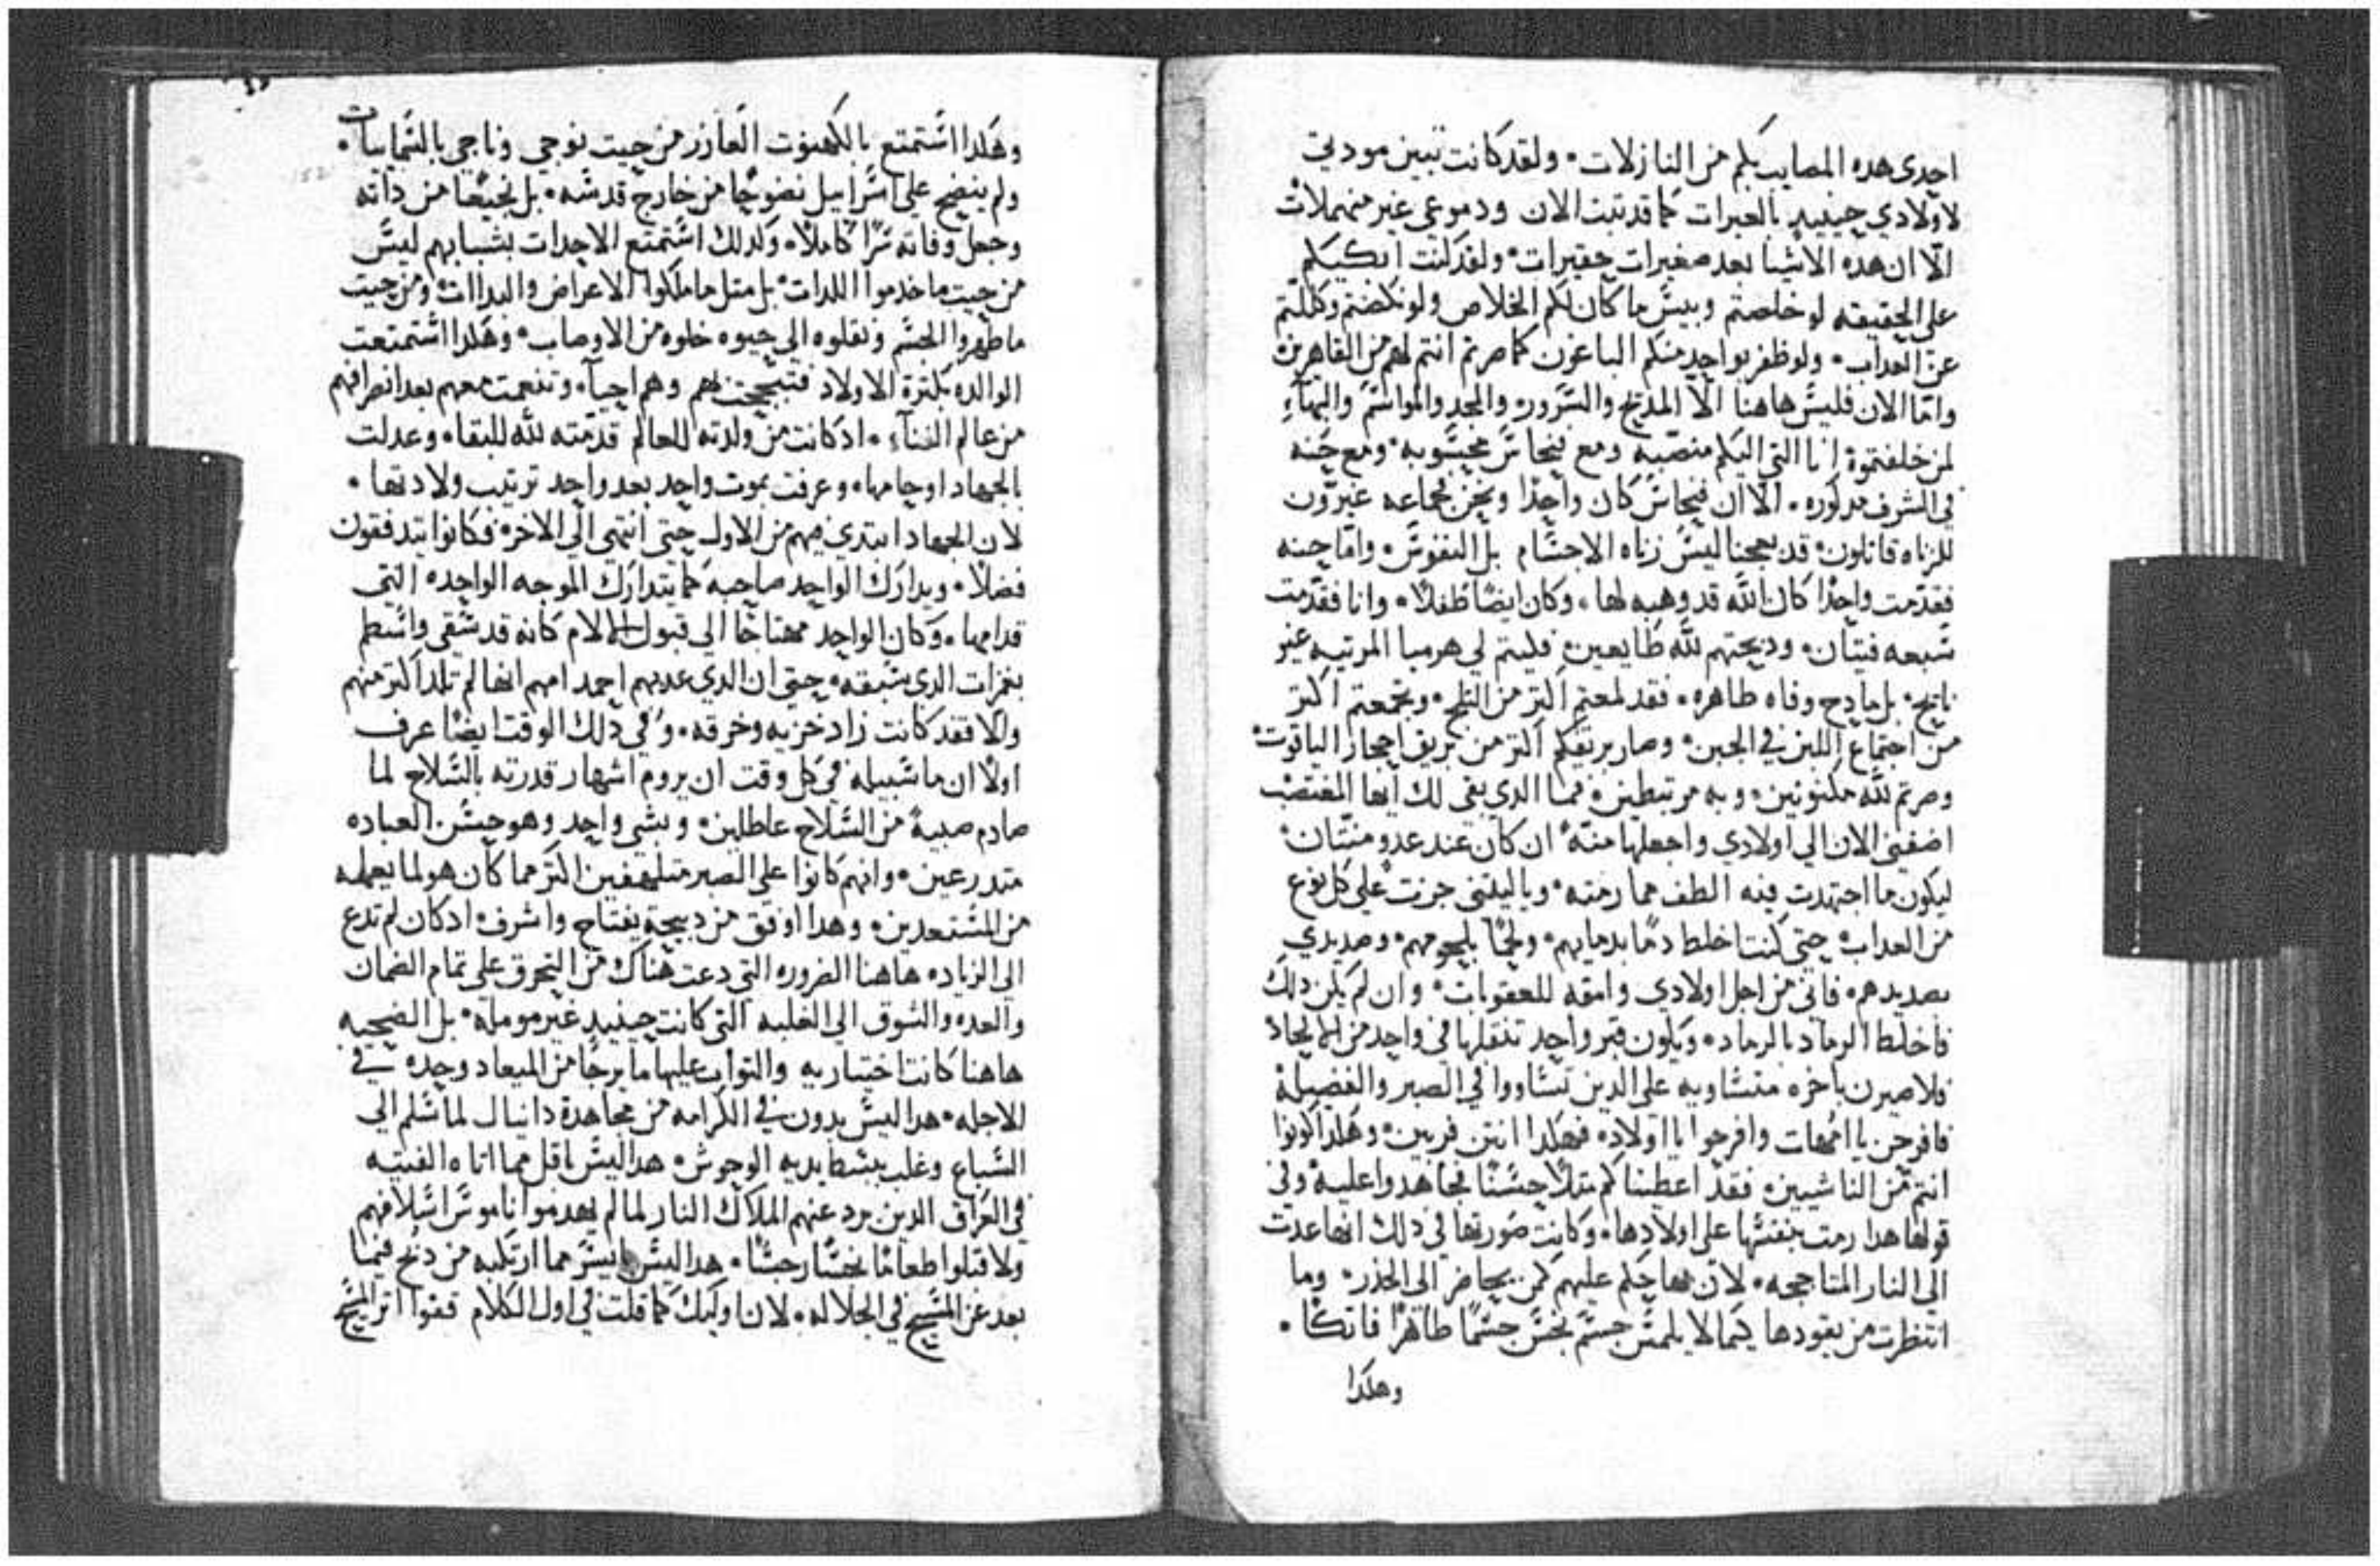 احدى هده المصايب بكم من النازلات۰ ولقد كانت تبين مودتي
لاولادي حينيدٍ بالعبرات كما قد تبت الان ودموعي غير منهملات
الّا ان هده الاشيا بعد صغيرات حقيرات۰ ولقد كنت ابكيكم
على الحقيقه لو خلصتم وبيس ما كان لكم الخلاص ولو نكصتم وكللتم
عن العداب۰ ولو ظفر بواحدٍ منكم الباغون كما صرتم انتم لهم من القاهرين
وامّا الان فليس هاهنا الّا المديح والسرور۰ والمجد والمواسم والبهآءِ
لمن خلفتموة انا التي اليكم منصّبه ومع فنحاس محسّوبه۰ ومع حنه
في الشرف مدكوره۰ الّا ان فنحاس كان واحدًا ونحن جماعه غيرّون
للزناه قاتلون۰ قد بعجنا ليس زناه الاجسام بل النفوس۰ وامّا حنه
فقدّمت واحدًا كان اللّه قد وهبه لها۰ وكان ايضًا طفلًا۰ وانا فقدّمت
سبعه فتيان۰ ودبحتهم للّه طايعين۰ فليتم لي هرميا المرتيه غير
نايح۰ بل مادح وفاه طاهره۰ فقد لمعتم اكتر من التلج۰ وتجمعتم اكتر
من اجتماع اللبن في الجبن۰ وصار برتقكم اكتر من بريق احجار الياقوت۰
وصرتم للّه مكنونين۰ وبه مرتبطين۰ فما الدي بقى لك ايها المغتصب
اضفني الان الي اولادي واجعلها منّه ان كان عند عدو منّتان۰
ليكون ما اجتهدت فيه الطف مما رمته۰ وياليتني جزت على كل نوع
من العداب۰ حتي كنت اخلط دمًا بدمايهم۰ ولحمًا بلحومهم۰ وصديدي
بصديدهم۰ فاني من اجل اولادي وامقه للعقوبات۰ وان لم يكن دلك
فاخلط الرماد بالرماد۰ ويكون قبر واحد تنقلها في واحد من الالحاد
ولا صيرن باخره متساويه على الدين تساووا في الصبر والفضيلة
فافرحن يا امّهات وافرحوا يا اولاد۰ فهكدا انتن فربين۰ وهكدا كونوا
انتم من الناشيين۰ فقد اعطيناكم متلًا حسنًا فجاهدوا عليه وفي
قولها هدا رمت بنفسها على اولادها۰ وكانت صورتها في دلك انها عدت
الي النار المتاججه۰ لان بها حكم عليهم كمن يحاضر الى الخدر۰ وما
انتظرت من يقودها كيما لا يلمس جسم نجس جسمًا طاهرًا فاتكًا۰
وهكدا
وهكدا استمتع بالكهنوت العازر من حيت نوجي وناجي بالسمايات۰
ولم ينضح على اسراييل نضوحًا من خارج قدسه۰ بل نجيعًا من داته
وجعل وفاته سرًا كاملًا۰ وكدلك استمتع الاحدات بشبابهم ليس
من حيت ما خدموا اللدات۰ بل متل ما ملكوا الاعراض والبداات۰ ومن حيت
ما طهروا الجسم ونقلوه الى حيوه خلوه من الاوصاب۰ وهكدا استمتعت
الوالده بكترة الاولاد فتبججت بهم وهم احيآ۰ وتنعمت معهم بعد انصرافهم
من عالم الفنآءِ۰ اد كانت من ولدته للعالم قدّمته للّه للبقا۰ وعدلت
بالجهاد اوجامها۰ وعرفت بموت واحد بعد واحد ترتيب ولادتها۰
لان الجهاد ابتدي فيهم من الاول حتي انتهى الي الاخر۰ فكانوا يتدفقون
فضلًا۰ ويدارك الواحد صاحبه كما يتدارك الموجه الواحده التي
قدامها۰ وكان الواحد محتاجًا الى قبول الالام كانه قد شقى واسطم
بغمرات الدي سبقه۰ حتى ان الدي عدبهم احمد امهم انها لم تلد اكتر منهم
والّا فقد كانت زاد خزيه وخرقه۰ وفي دلك الوقت ايضًا عرف
اولًا ان ما سبيله في كل وقت ان يروم اشهار قدرته بالسلاح لما
صادم صبيةً من السلاح عاطلين۰ وبشي واحد وهو حسن العباده
متدرعين۰ وانهم كانوا على الصبر متلهفين اكتر مما كان هو لما يعمله
من المستعدين۰ وهدا اوفق من دبيحة يفتاح واشرف۰ اد كان لم تدع
الى الزياده هاهنا الضروره التي دعت هناك من التحرق على تمام الضمان
والعده والشوق الى الغلبه التي كانت حينيدٍ غير مومله۰ بل الضحيه
هاهنا كانت اختياريه والتواب عليها ما يرجا من الميعاد وحده في
الاجله۰ هدا ليس بدون في الكرامه من مجاهدة دانيال لما سلم الي
السباع وغلب ببسط يديه الوحوش۰ هدا ليس باقل مما اتاه الفتيه
في العراق الدين برد عنهم الملاك النار لما لم يعدموا ناموس اسلافهم
ولا قبلوا طعامًا نجسًا رجسًا۰ هدا ليس بايسر مما ارتكبه من دبح فيما
بعد عن المسيح في الجلاله۰ لان اوليك كما قلت في اول الكلام قفوا اتر المسيح